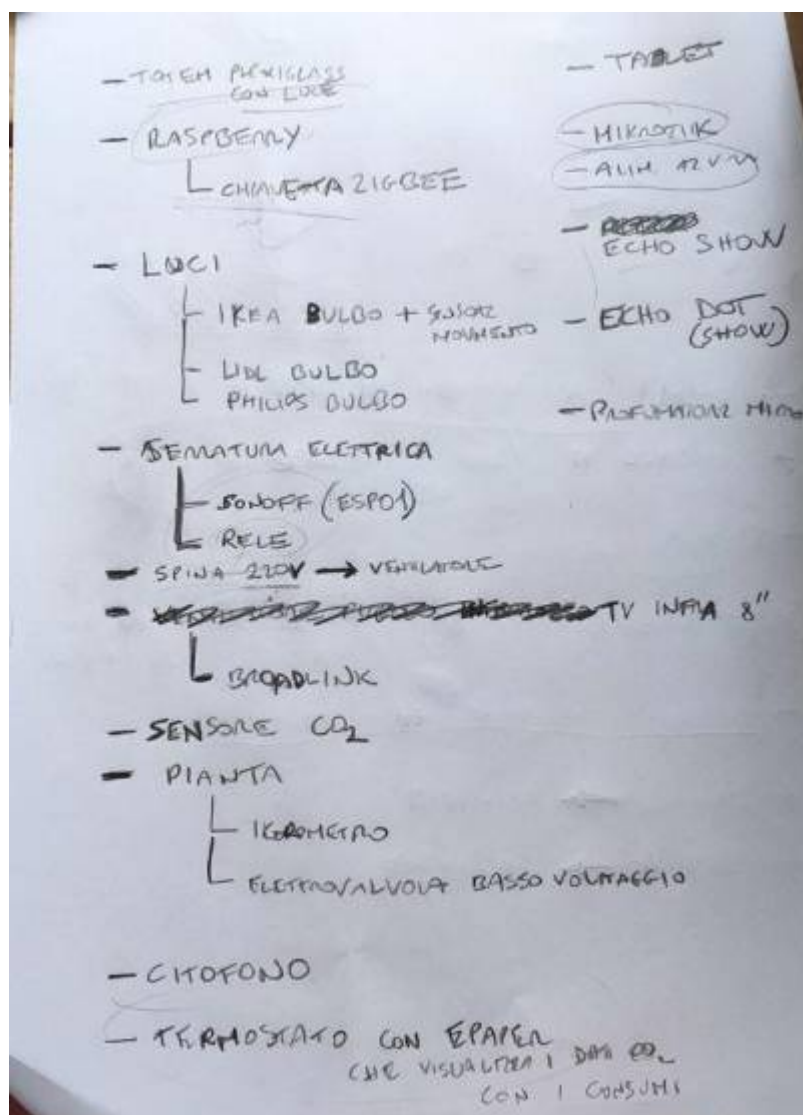 - TOTEM PLEXIGLASS
CON LUCE
- RASPBERRY
CHIAVETTA ZIGBEE
- LUCI
IKEA BULBO + SENSORE
MOVIMENTO
LIDL BULBO
PHILIPS BULBO
- SERRATURA ELETTRICA
SONOFF (ESP01)
RELE
- SPINA 220V → VENTILATORE
- TV INFRA 8"
BROADLINK
- SENSORE CO2
- PIANTA
IGROMETRO
ELETTROVALVOLA BASSO VOLTAGGIO
- CITOFONO
- TERMOSTATO CON EPAPER
CHE VISUALIZZA I DATI CO2
CON I CONSUMI
- TABLET
- MIKROTIK
- ALIM 12V
- ECHO SHOW
- ECHO DOT
(SHOW)
- PROFUMATORE